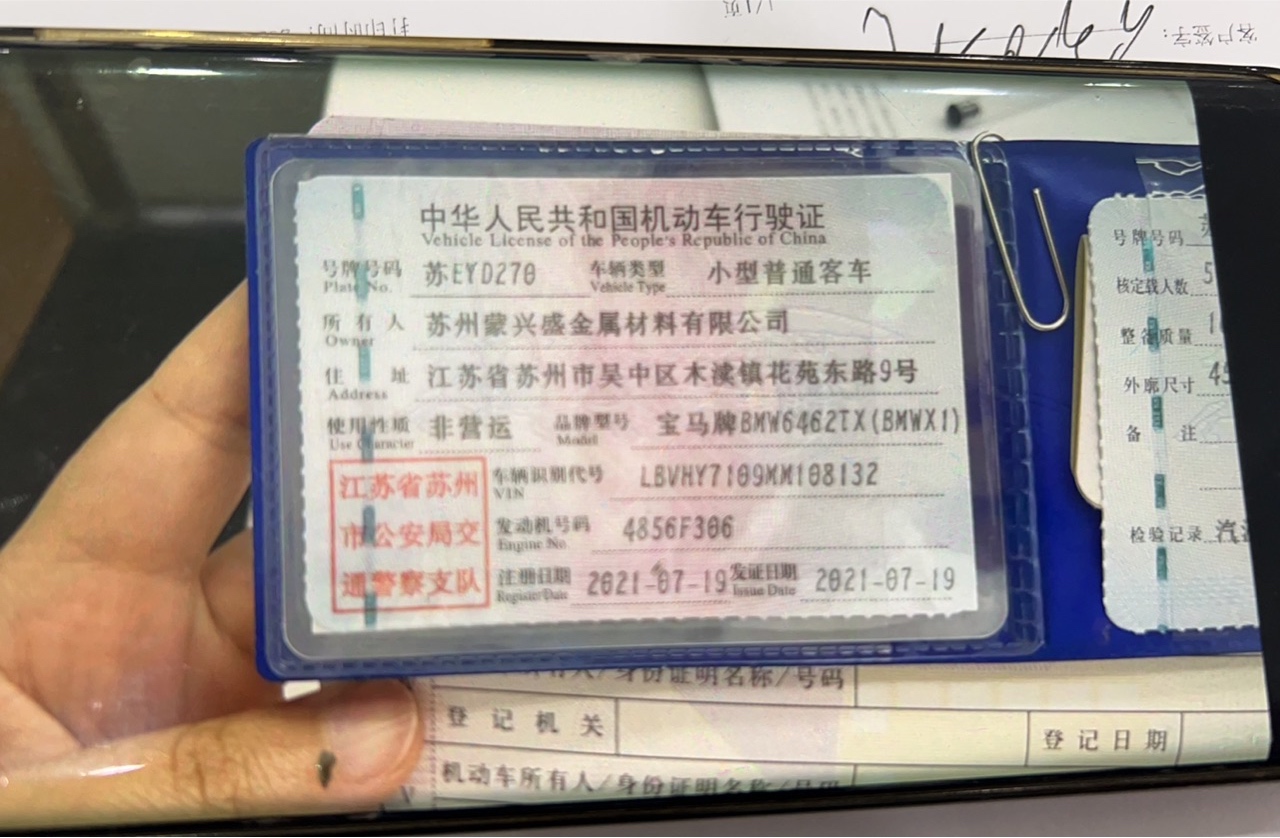 客户签字:
1/1页
打印时间:
中华人民共和国机动车行驶证
Vehicle License of the People's Republic of China
号牌号码 苏EYD270 车辆类型 小型普通客车
Plate No. Vehicle Type
所有人 苏州蒙兴盛金属材料有限公司
Owner
住址 江苏省苏州市吴中区木渎镇花苑东路9号
Address
使用性质 非营运 品牌型号 宝马牌BMW6462TX(BMWX1)
Use Character Model
江苏省苏州
市公安局交
通警察支队
车辆识别代号 LBVHY7109MM108132
VIN
发动机号码 4856F306
Engine No.
注册日期 2021-07-19 发证日期 2021-07-19
Register Date Issue Date
号牌号码 苏
核定载人数 5
整备质量 1
外廓尺寸 45
备注
检验记录 汽
所有人/身份证明名称/号码
登记机关 登记日期
机动车所有人/身份证明名称/号码